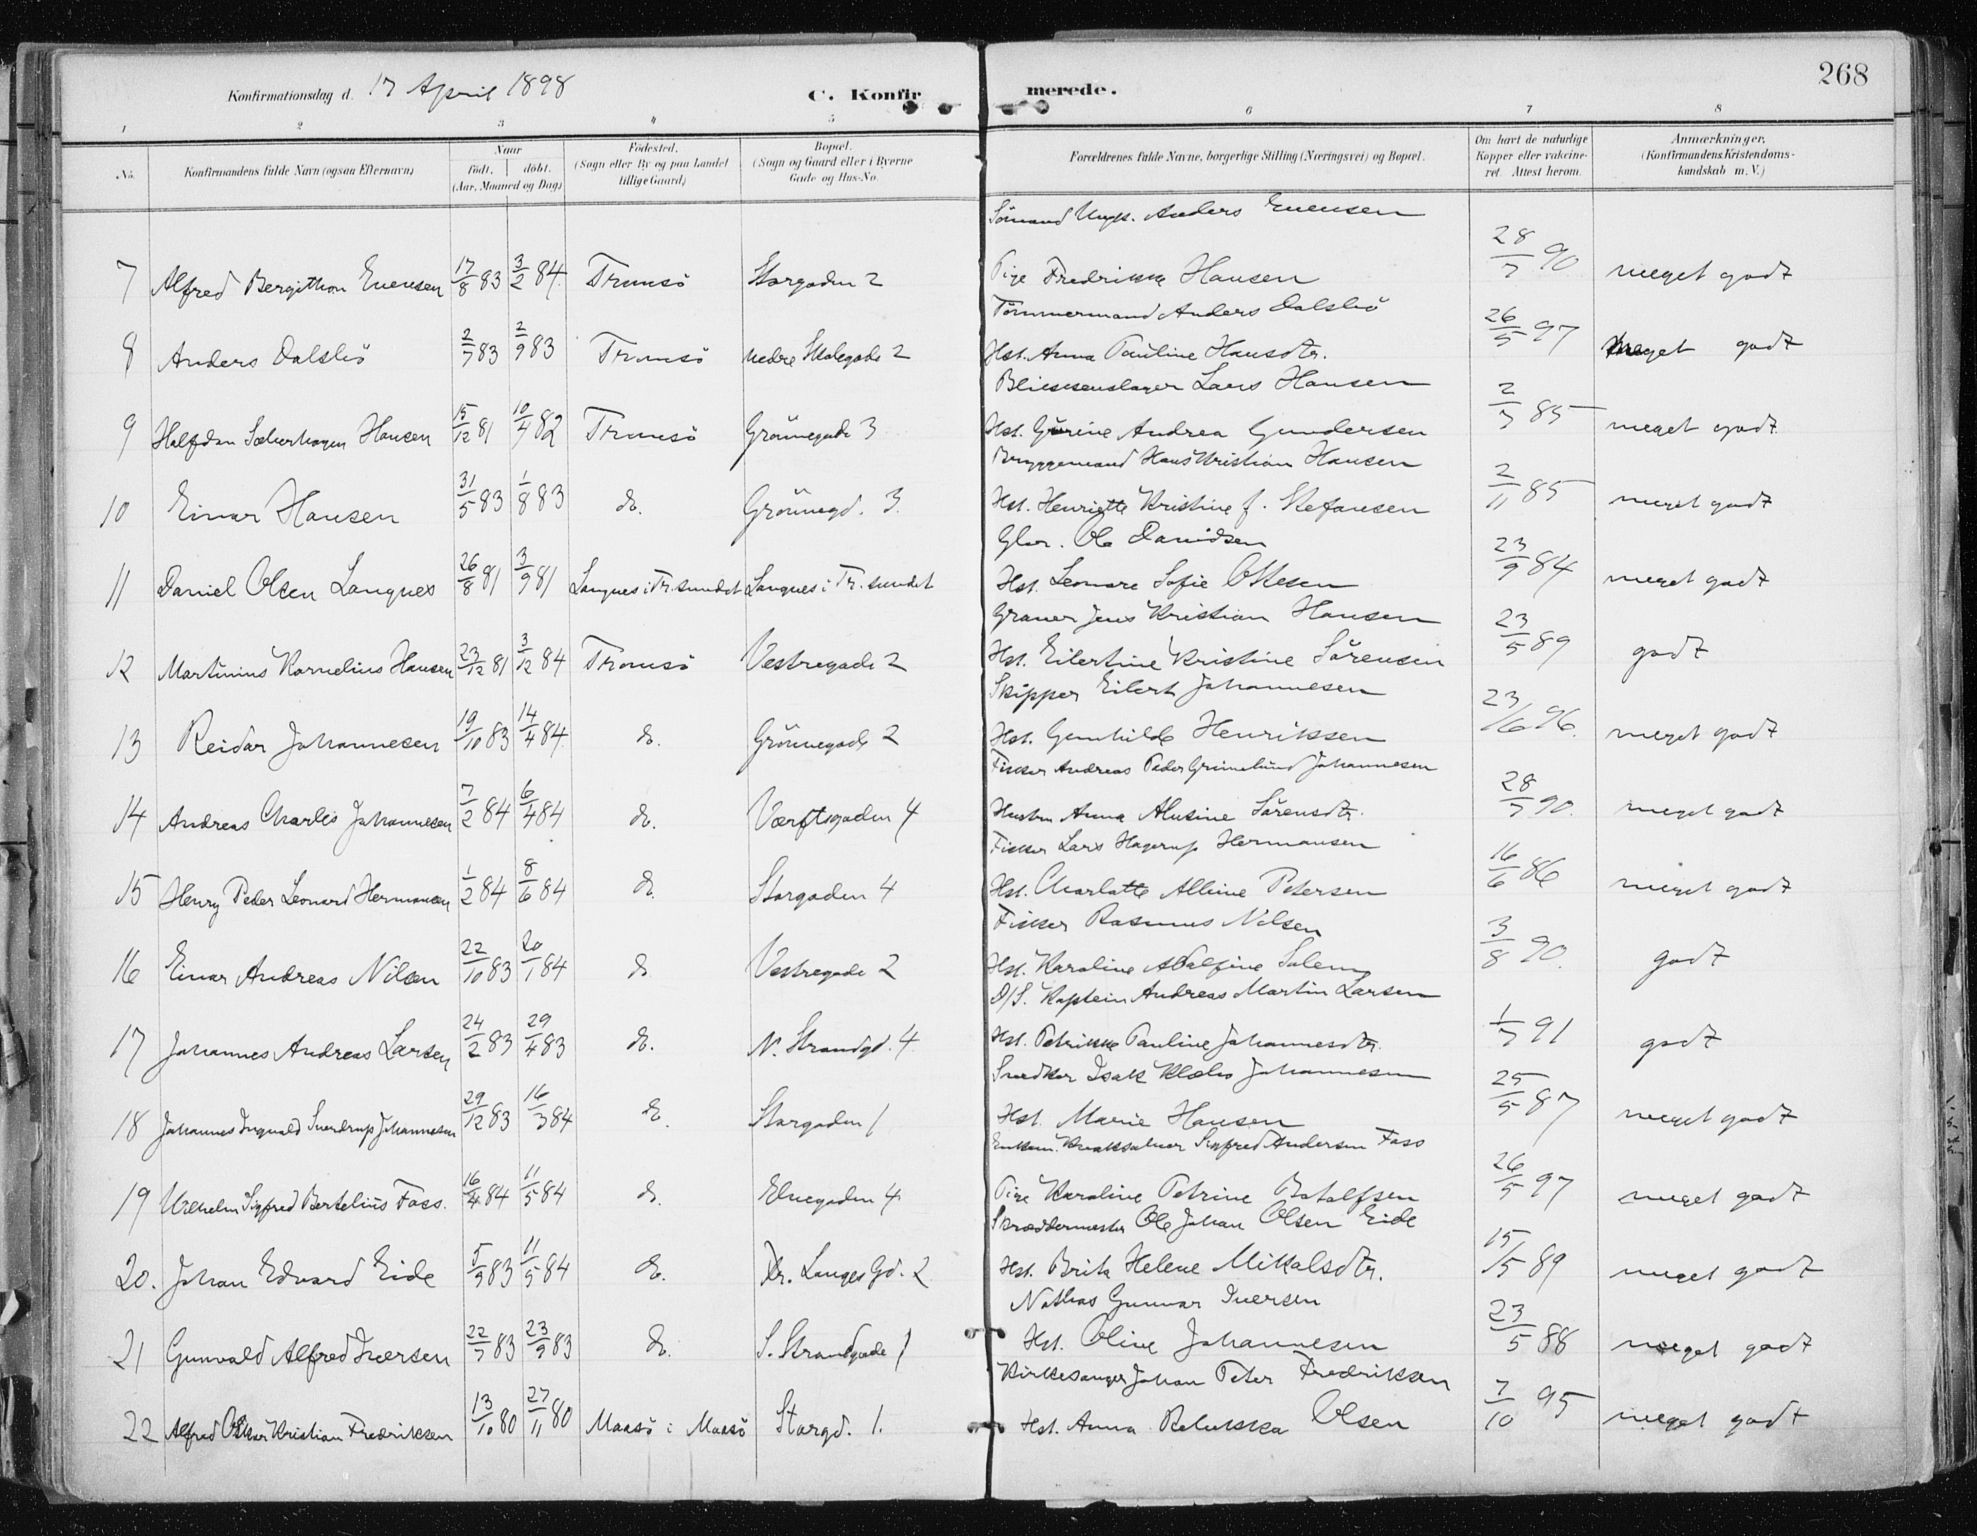 268
Konfirmationsdag d. 17 April 1898 C. Konfirmerede.
1 2 3 4 5 6 7 8
No. Konfirmandens fulde Navn (ogsaa Efternavn) Naar födt, döbt. (Aar, Maaned og Dag) Födested. (Sogn eller By og paa Landet tillige Gaard) Bopæl. (Sogn og Gaard eller i Byerne Gade og Hus-No. Forældrenes fulde Navne, borgerlige Stilling (Næringsvei) og Bopæl. Om havt de naturlige Kopper eller vakcineret. Attest herom. Anmærkninger. (Konfirmandens Kristendomskundskab m. V.)
Sömand Ungk. Anders Evensen
7 Alfred Bergithon Evensen 17/8 83 3/2 84. Tromsö Storgaden 2 Pige Fredrikke Hansen 28/7 90 meget godt
Tömmermand Anders Dalsbö
8 Anders Dalsbö 2/7 83 2/9 83 Tromsö nedre Skolegade 2 Hst. Anna Pauline Hansdtr. 26/5 97 meget godt
Blikkenslager Lars Hansen
9 Halfdan Hansen 15/12 81 10/4 82 Tromsö Grönnegade 3 Hst. Andrea Gundersen 2/7 85 meget godt
Bryggemand Hans Kristian Hansen
10 Einar Hansen 31/5 83 1/8 83 do. Grönnegd. 3. Hst. Henriette Kristine f. Stefansen 2/11 85 meget godt
Gbr. Ole Danidsen
11 Daniel Olsen Langnes 26/8 81 3/9 81 Langnes i Tr.sundet Langnes i Tr.sundet Hst. Leonore Sofie Ottesen 23/9 84 meget godt
Graver Jens Kristian Hansen
12 Martinius Kornelius Hansen 23/12 81 3/12 84 Tromsö Vestregade 2 Hst. Eilertine Kristine Sörensen 23/5 89 godt
Skipper Eilert Johannesen
13 Reidar Johannesen 19/10 83 14/4 84. do. Grönnegade 2 Hst. Gunhilde Henriksen 23/6 96. meget godt
Fisker Andreas Peder Grönnelund Johannesen
14 Andreas Charles Johannesen 7/2 84 6/4 84 do. Værftsgaden 4 Hustru Anna Alusine Sörensdtr. 28/7 90. meget godt
Fisker Lars Hagerup Hermansen
15 Henry Peder Leonard Hermansen 1/2 84 8/6 84 do. Storgaden 4 Hst. Charlotte Alline Petersen 16/6 86 meget godt
Fisker Rasmus Nilsen
16 Einar Andreas Nilsen 22/10 83 20/1 84 do. Vestregade 2 Hst. Karoline Adalfine 3/8 90. godt
D/S. Kaptein Andreas Martin Larsen
17 Johannes Andreas Larsen 24/2 83 29/4 83 do. N. Strandgd. 4 Hst. Petrikke Pauline Johannesdtr. 1/7 91 godt
Snedker Isak Klæbo Johannesen
18 Johannes Ingvald Sverdrup Johannesen 29/12 83 16/3 84 do. Storgaden 1 Hst. Marie Hansen 25/5 87 meget godt
Enkem. Kvaksalver Sigfred Andersen Foss
19 Vilhelm Sigfred Bertelius Foss. 16/4 84 11/5 84 do. Elvegaden 4 Pige Karoline Petrine Botolfsen 26/5 97 meget godt
Skræddermester Ole Johan Olsen Eide
20. Johan Edvard Eide 5/9 83 11/5 84 do. Kr. Langes Gd. 2 Hst. Brita Helene Mikalsdtr. 15/5 89 meget godt
Nothas Gunvar Iversen
21 Gunvald Alfred Iversen 22/7 83 23/9 83 do. S. Strandgade 1 Hst. Oline Johannesen 23/5 88 meget godt
Kirkesanger Johan Peter Fredriksen
22 Alfred Oskar Kristian Fredriksen 13/10 80 27/11 80 Maasö i Maasö Storgd. 1. Hst. Anna Rebekka Olsen 7/10 95 meget godt